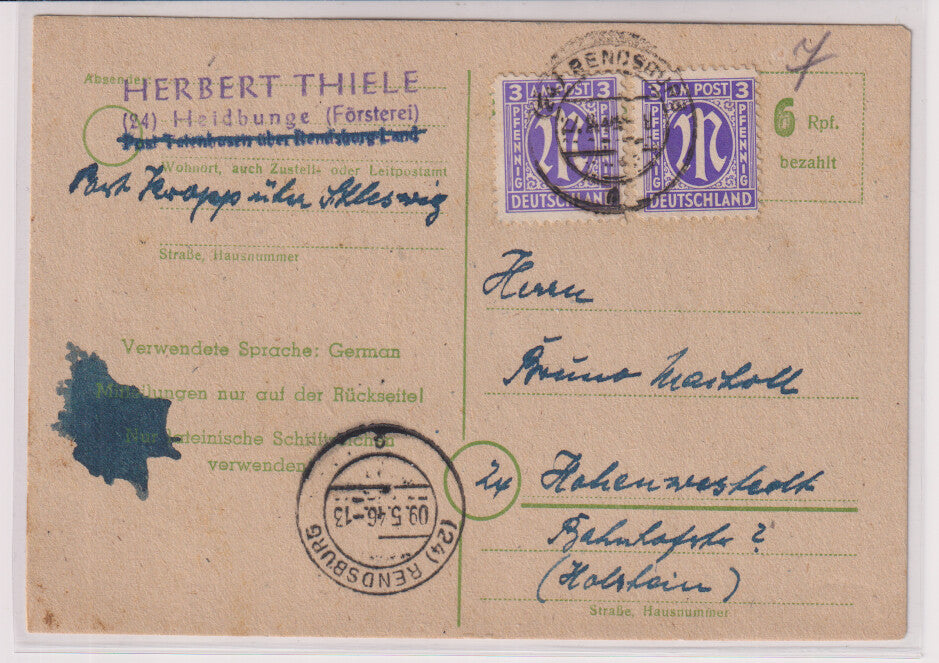 Absender:
HERBERT THIELE
(24) Heidbunge (Försterei)
Post Totenhusen über Rendsburg Land
Wohnort, auch Zustell- oder Leitpostamt
Post Kropp über Schleswig
Straße, Hausnummer
Verwendete Sprache: German
Mitteilungen nur auf der Rückseite!
Nur lateinische Schriftzeichen
verwenden
(24) RENDSBURG
09.5.46.-13
3 AM POST 3
PFENNIG PFENNIG
M
DEUTSCHLAND
3 AM POST 3
PFENNIG PFENNIG
M
DEUTSCHLAND
RENDSBURG
6 Rpf.
bezahlt
Herrn
Bruno
24 Hohenwestedt
Bahnhofstr
(Holstein)
Straße, Hausnummer